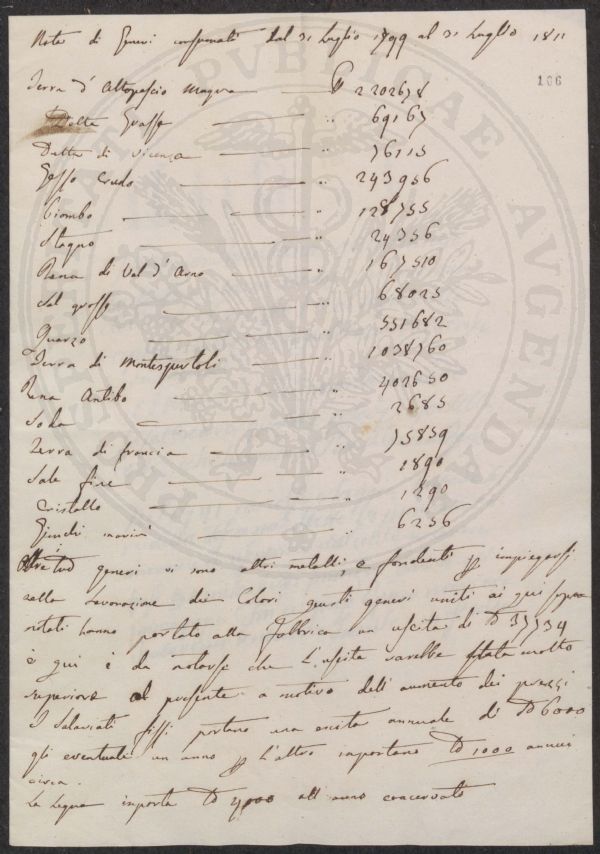 Nota di Generi consumati dal 31 Luglio 1799 al 31 Luglio 1811
166
Terra d'Altopascio magra ℔ 2202678
Detta Grassa 69167
Detta di Vicenza 76115
Gesso Crudo 243956
Piombo 128755
Stagno 24356
Rena di Val d'Arno 167510
Sal grosso 68025
Quarzo 551682
Terra di Montespertoli 1038760
Rena Antibo 402650
Soda 2685
Terra di francia 15859
Sale fine 1890
Cristallo 1290
Giunchi marini 6256
generi vi sono altri metalli, e fondenti p impiegarsi
nella Lavorazione dei Colori questi generi uniti ai qui sopra
notati hanno portato alla Fabbrica un uscita di 37734
e qui è da notarsi che L'uscita sarebbe stata molto
superiore al presente a motivo dell'aumento dei prezzi
I Salariati fissi portano una uscita annuale di 6000
gli eventuali un anno p L'altro importano 1000 annui
circa.
La Legna importa 4000 all'anno
PRISTINAE VTILITATI PVBLICAE AVGENDAE